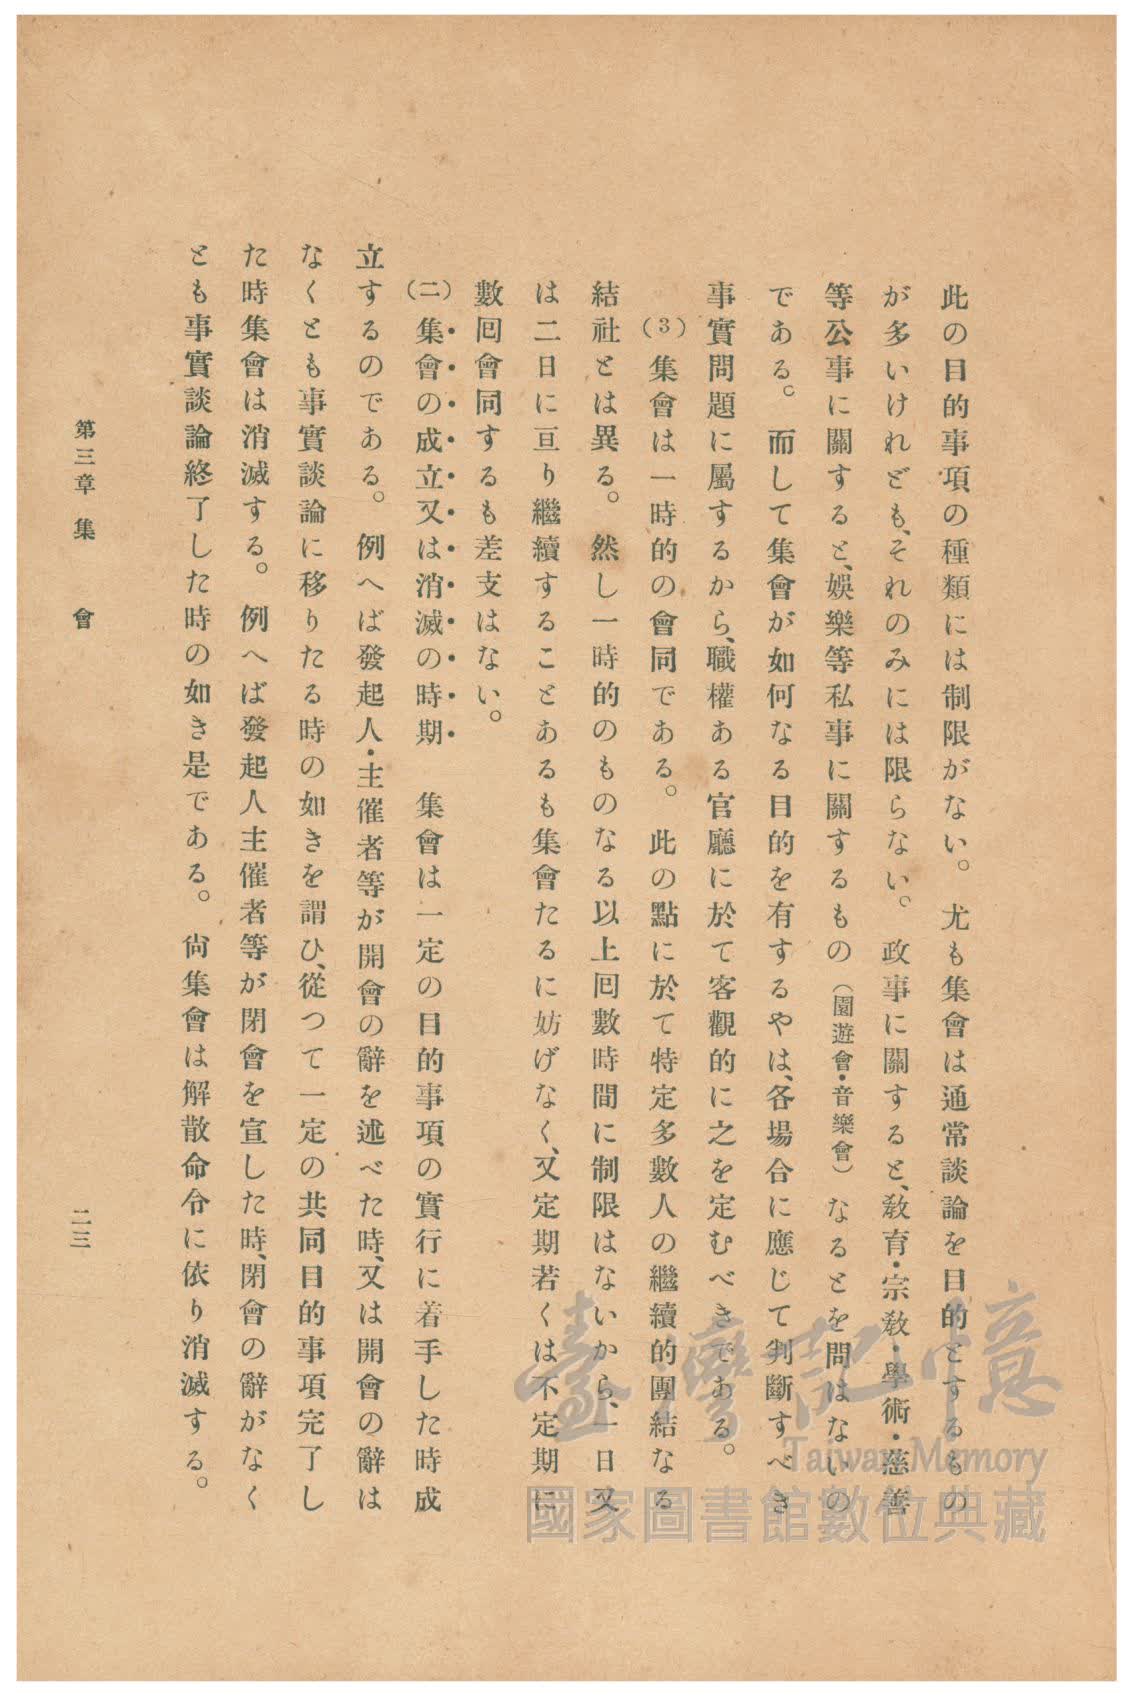 此の目的事項の種類には制限がない。尤も集會は通常談論を目的とするもの
が多いけれども、それのみには限らない。政事に關すると、敎育・宗敎・學術・慈善
等公事に關すると、娛樂等私事に關するもの（園遊會・音樂會）なるとを問はないの
である。而して集會が如何なる目的を有するやは、各場合に應じて判斷すべき
事實問題に屬するから、職權ある官廳に於て客觀的に之を定むべきである。
（3）集會は一時的の會同である。此の點に於て特定多數人の繼續的團結なる
結社とは異る。然し一時的のものなる以上囘數時間に制限はないから、一日又
は二日に亘り繼續することあるも集會たるに妨げなく、又定期若くは不定期に
數囘會同するも差支はない。
（二）集會の成立又は消滅の時期　集會は一定の目的事項の實行に着手した時成
立するのである。例へば發起人・主催者等が開會の辭を述べた時、又は開會の辭は
なくとも事實談論に移りたる時の如きを謂ひ、從つて一定の共同目的事項完了し
た時集會は消滅する。例へば發起人主催者等が閉會を宣した時、閉會の辭がなく
とも事實談論終了した時の如き是である。尙集會は解散命令に依り消滅する。
第三章 集　會
二三
臺灣記憶
Taiwan Memory
國家圖書館數位典藏